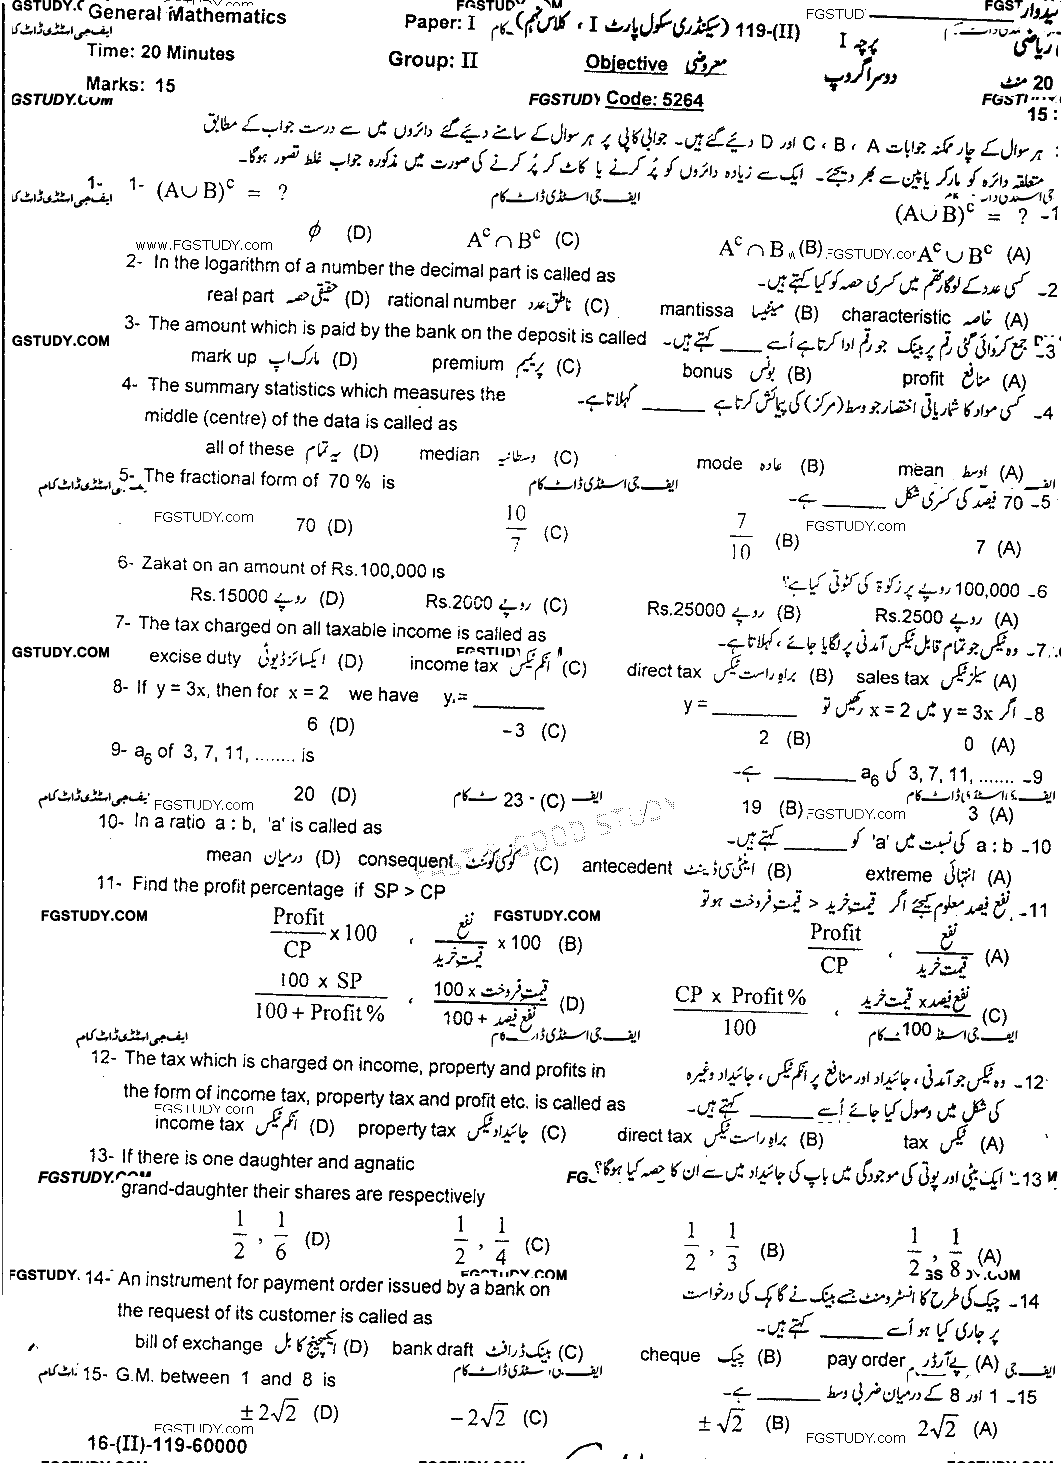 General Mathematics Paper: I (سیکنڈری سکول پارٹ I ، کلاس نہم) 119-(II) پرچہ I ریاضی
Time: 20 Minutes Group: II Objective معروضی دوسرا گروپ 20 منٹ
Marks: 15 FGSTUDY Code: 5264 15 :
GSTUDY.COM
ہر سوال کے چار ممکنہ جوابات A ، B ، C اور D دیئے گئے ہیں۔ جوابی کاپی پر ہر سوال کے سامنے دیئے گئے دائروں میں سے درست جواب کے مطابق
متعلقہ دائرہ کو مارکر یا پین سے بھر دیجئے۔ ایک سے زیادہ دائروں کو پُر کرنے یا کاٹ کر پُر کرنے کی صورت میں مذکورہ جواب غلط تصور ہوگا۔
1- (A∪B)ᶜ = ? ایف جی اسٹڈی ڈاٹ کام (A∪B)ᶜ = ? -1
ϕ (D) Aᶜ∩Bᶜ (C) Aᶜ∩B (B) Aᶜ∪Bᶜ (A)
www.FGSTUDY.com
2- In the logarithm of a number the decimal part is called as کسی عدد کے لوگارتھم میں کسری حصہ کو کیا کہتے ہیں۔ -2
real part حقیقی حصہ (D) rational number ناطق عدد (C) mantissa مینٹیسا (B) characteristic خاصہ (A)
3- The amount which is paid by the bank on the deposit is called جمع کروائی گئی رقم پر بینک جو رقم ادا کرتا ہے اُسے _____ کہتے ہیں۔ -3
GSTUDY.COM
mark up مارک اپ (D) premium پریمیم (C) bonus بونس (B) profit منافع (A)
4- The summary statistics which measures the کسی مواد کا شماریاتی اختصار جو وسط (مرکز) کی پیمائش کرتا ہے _____ کہلاتا ہے۔ -4
middle (centre) of the data is called as
all of these یہ تمام (D) median وسطانیہ (C) mode عادہ (B) mean اوسط (A)
5- The fractional form of 70 % is ایف جی اسٹڈی ڈاٹ کام 70 فیصد کی کسری شکل _____ ہے۔ -5
FGSTUDY.com 70 (D) 10/7 (C) 7/10 (B) FGSTUDY.com 7 (A)
6- Zakat on an amount of Rs.100,000 is 100,000 روپے پر زکوٰۃ کی کٹوتی کیا ہے؟ -6
Rs.15000 روپے (D) Rs.2000 روپے (C) Rs.25000 روپے (B) Rs.2500 روپے (A)
7- The tax charged on all taxable income is called as وہ ٹیکس جو تمام قابل ٹیکس آمدنی پر لگایا جائے ، کہلاتا ہے۔ -7
GSTUDY.COM
excise duty ایکسائز ڈیوٹی (D) income tax انکم ٹیکس (C) direct tax براہ راست ٹیکس (B) sales tax سیلز ٹیکس (A)
8- If y = 3x, then for x = 2 we have y = _____ اگر y = 3x میں x = 2 رکھیں تو y = _____ -8
6 (D) -3 (C) 2 (B) 0 (A)
9- a₆ of 3, 7, 11, ........ is 3, 7, 11, ....... کی a₆ _____ ہے۔ -9
FGSTUDY.com 20 (D) 23 (C) 19 (B) FGSTUDY.com 3 (A)
10- In a ratio a : b, 'a' is called as a : b کی نسبت میں 'a' کو _____ کہتے ہیں۔ -10
GOOD STUDY
mean درمیان (D) consequent کونسی کوئنٹ (C) antecedent اینٹی سی ڈینٹ (B) extreme انتہائی (A)
11- Find the profit percentage if SP > CP نفع فیصد معلوم کیجئے اگر قیمت خرید < قیمت فروخت ہو تو -11
FGSTUDY.COM FGSTUDY.COM
Profit/CP x 100 ، نفع/قیمت خرید x 100 (B) Profit/CP ، نفع/قیمت خرید (A)
100 x SP/100 + Profit % ، قیمت فروخت x 100/نفع فیصد + 100 (D) CP x Profit %/100 ، نفع فیصد x قیمت خرید/100 (C)
ایف جی اسٹڈی ڈاٹ کام ایف جی اسٹڈی ڈاٹ کام
12- The tax which is charged on income, property and profits in وہ ٹیکس جو آمدنی ، جائیداد اور منافع پر انکم ٹیکس ، جائیداد وغیرہ -12
the form of income tax, property tax and profit etc. is called as کی شکل میں وصول کیا جائے اُسے _____ کہتے ہیں۔
FGSTUDY.com
income tax انکم ٹیکس (D) property tax جائیداد ٹیکس (C) direct tax براہ راست ٹیکس (B) tax ٹیکس (A)
13- If there is one daughter and agnatic ایک بیٹی اور پوتی کی موجودگی میں باپ کی جائیداد میں سے ان کا حصہ کیا ہوگا؟ -13
grand-daughter their shares are respectively
1/2 , 1/6 (D) 1/2 , 1/4 (C) 1/2 , 1/3 (B) 1/2 , 1/8 (A)
FGSTUDY. 14- An instrument for payment order issued by a bank on چیک کی طرح کا انسٹرومنٹ جسے بینک نے گاہک کی درخواست -14
the request of its customer is called as پر جاری کیا ہو اُسے _____ کہتے ہیں۔
bill of exchange ایکسچینج کا بل (D) bank draft بینک ڈرافٹ (C) cheque چیک (B) pay order پے آرڈر (A)
15- G.M. between 1 and 8 is ایف جی اسٹڈی ڈاٹ کام 1 اور 8 کے درمیان ضربی وسط _____ ہے۔ -15
±2√2 (D) -2√2 (C) ±√2 (B) 2√2 (A)
FGSTUDY.com FGSTUDY.com
16-(II)-119-60000